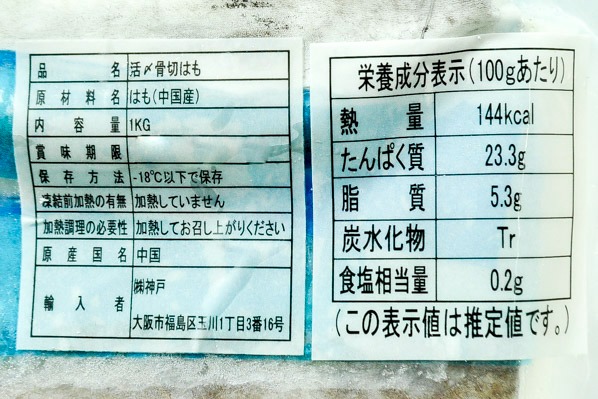 品名 活〆骨切はも
原材料名 はも(中国産)
内容量 1KG
賞味期限
保存方法 -18℃以下で保存
凍結前加熱の有無 加熱していません
加熱調理の必要性 加熱してお召し上がりください
原産国名 中国
輸入者 ㈱神戸
大阪市福島区玉川1丁目3番16号
栄養成分表示(100gあたり)
熱量 144kcal
たんぱく質 23.3g
脂質 5.3g
炭水化物 Tr
食塩相当量 0.2g
(この表示値は推定値です。)